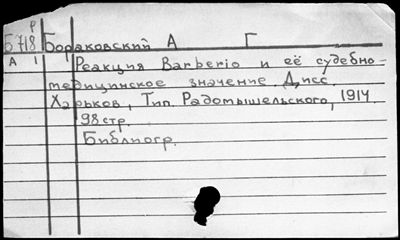 Р
Б718 Бораковский А Г
А 1 Реакция Barberio и её судебно-
медицинское значение. Дисс.
Харьков, Тип. Радомышельского, 1914.
98 стр.
Библиогр.